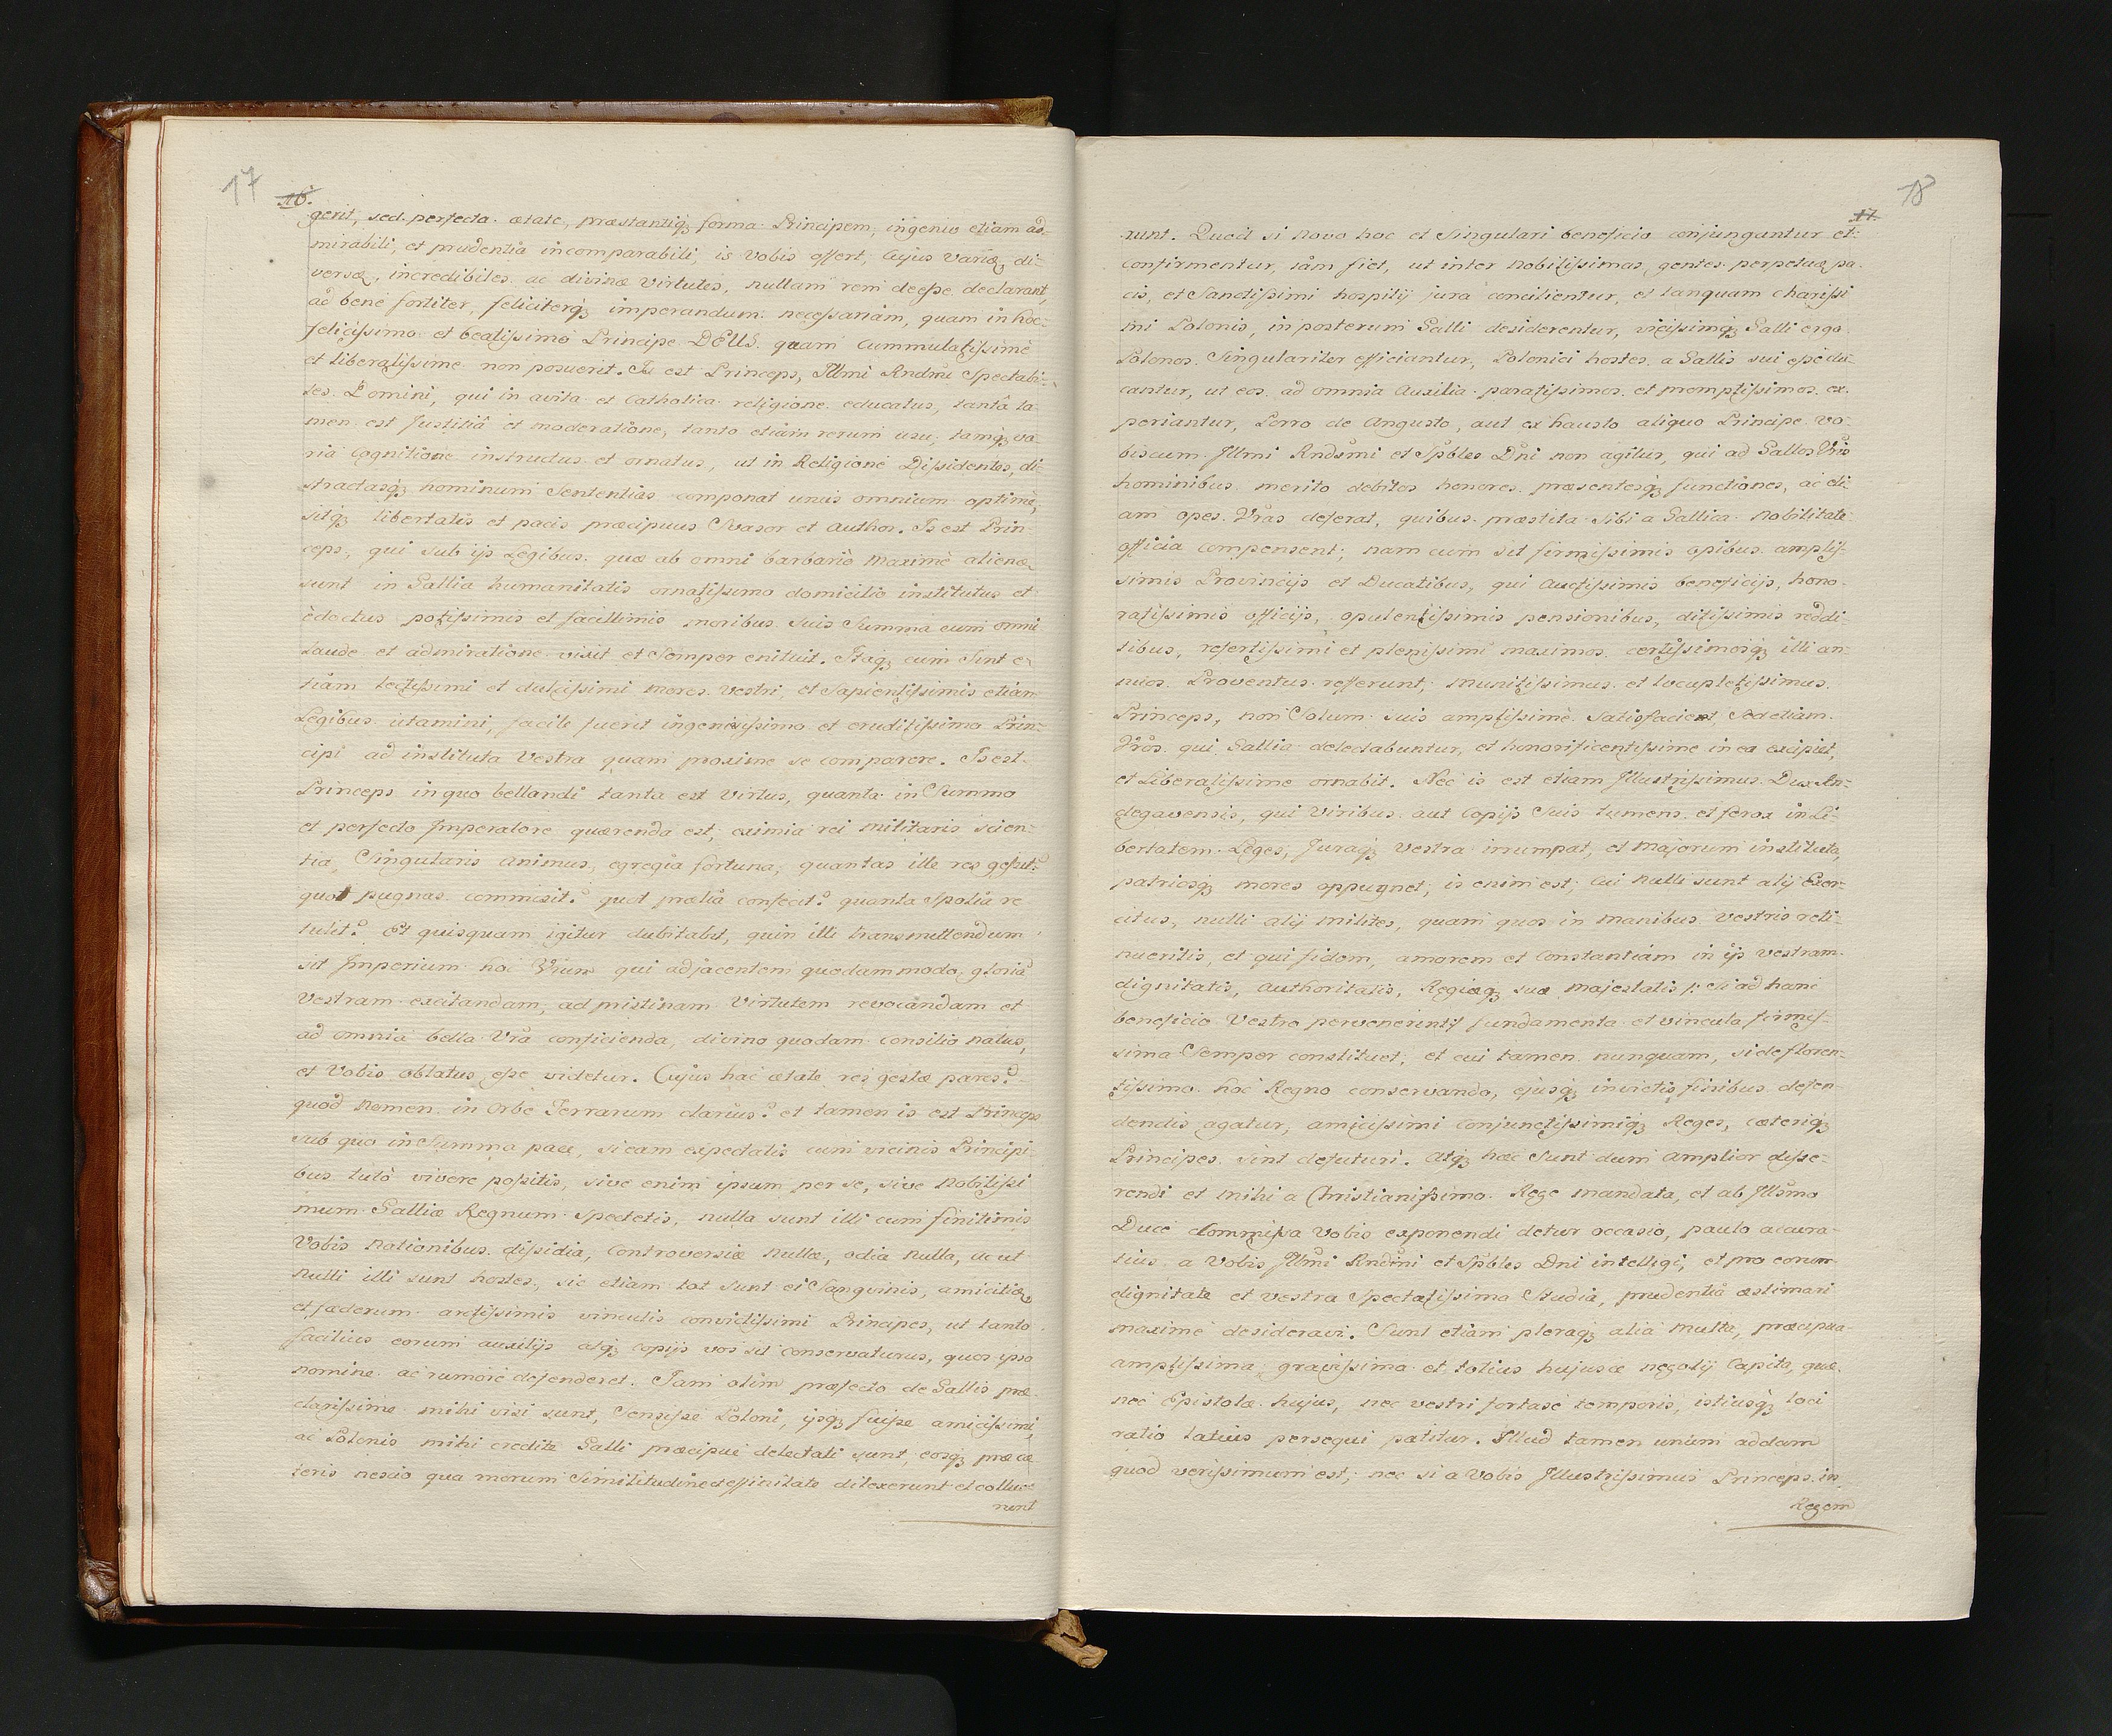 17
16.
gerit, sed perfecta ætate, præstantiq; forma Principem, ingenio etiam ad-
mirabili, et prudentiâ incomparabili, is vobis offert, Cujus variæ, di-
versæ, incredibiles ac divinæ virtutes, nullam rem deeße declarant,
ad bene fortiter, feliciterq; imperandum necessariam, quam in hoc
felicißimo et beatißimo Principe DEUS quam Cummulatißimè
et liberalißime non posuerit. Is est Princeps, Illmi Rndmi Spectabi-
les Domini, qui in avita et Catholica religione educatus, tantâ ta-
men est Justitiâ et moderatione, tanto etiam rerum usu, tamq; va-
ria Cognitione instructus et ornatus, ut in Religione Dißidentes, di-
stractasq; hominum Sententias componat unus omnium optimè,
sitq; libertatis et pacis præcipuus Svasor et Author. Is est Prin-
ceps, qui sub ijs Legibus quæ ab omni barbariè maximè alienæ
sunt in Gallia humanitatis ornatißimo domicilio institutus et
edoctus potißimis et facillimis moribus suis Summa cum omni
Laude et admiratione vixit et Semper enituit. Itaq; cum Sint e-
tiam lectißimi et dulcißimi mores vestri, et Sapientißimis etiam
Legibus utamini, facile fuerit ingeniosißimo et eruditißimo Prin-
cipi ad instituta Vestra quam proxime se comparere. Is est
Princeps in quo bellandi tanta est Virtus, quanta in Summo
et perfecto Imperatore quærenda est, eximia rei militaris scien-
tia, Singularis animus, egregia fortuna, quantas ille res geßit?
quot pugnas commisit? quot prælia confecit? quanta Spolia re
tulit? Et quisquam igitur dubitabit, quin illi transmittendum
sit Imperium hoc Vium qui adjacentem quodammodo gloriâ
Vestram excitandam, ad pristinam Virtutem revocandam et
ad omnia bella Vra conficienda, divino quodam consilio natus,
et Vobis oblatus eße videtur. Cujus hac ætate res gestæ pares?
quod Nomen in Orbe Terrarum clarius? et tamen is est Princeps
sub quo in Summa pace, si eam expectatis cum vicinis Principi-
bus tutò vivere poßitis, sive enim ipsum per se, sive Nobilißi
mum Galliæ Regnum Spectetis, nulla sunt illi cum finitimis
Vobis Nationibus dißidia, Controversiæ nullæ, odia nulla, ac ut
Nulli illi sunt hostes, sic etiam tot sunt ei Sangvinis, amicitiæ
et fæderum arctißimis vinculis convictißimi Principes, ut tanto
facilius eorum auxilijs atq; copijs vos sit conservaturus, quos ipso
nomine ac rumore defenderet. Jam olim profecto de Gallis præ-
clarißime mihi visi sunt, Sensiße Poloni, ijsq; fuiße amicißimi,
ac Polonis mihi credite Galli præcipuè delectati sunt, eosq; præ cæ-
teris nescio qua morum Similitudine et affinitate dilexerunt et collue-
runt
18
17.
runt. Quod si Novo hoc et Singulari beneficio conjungantur et
confirmentur, iam fiet, ut inter Nobilißimas gentes perpetuæ pa-
cis, et Sanctißimi hospitij jura concilientur, et tanquam charißi
mi Polonis, in posterum Galli desiderentur, vicißimq; Galli erga
Polonos Singulariter efficiantur, Polonici hostes a Gallis sui eße du-
cantur, ut eos ad omnia Auxilia paratißimos et promptißimos ex-
periantur, Porro de Angusto, aut exhausto aliquo Principe Vo-
biscum Illmi Rndsmi et Spbles Dni non agitur, qui ad Gallos Vris
hominibus merito debitos honores præsentesq; functiones, ac di-
am opes Vras deferat, quibus præstita sibi a Gallica Nobilitate
officia compensent; nam cum sit firmißimis opibus amplis-
simis Provincijs et Ducatibus, qui Auctißimis beneficijs, hono-
ratißimis officijs, opulentißimis pensionibus, ditißimis reddi-
tibus, refertißimi et plenißimi maximos certißimosq; illi an-
nuos Proventus refferunt, munitißimus et locupletißimus
Princeps, non Solum suis amplißimè Satisfaciet, Sed etiam
Vros qui Gallia delectabuntur, et honorificentißime in ea excipiet,
et Liberalißime ornabit. Nec is est etiam Illustrißimus Dux An-
degavensis, qui Viribus aut Copijs Suis tumens et ferox in Li-
bertatem Leges, Juraq; vestra irrumpat, et Majorum instituta,
patriosq; mores oppugnet, is enim est, Cui nulli sunt alij Exer-
citus, nulli alij milites, quam quos in manibus vestris reti-
nueritis, et qui fidem, amorem et Constantiam in ijs vestram
dignitatis, Authoritatis, Regiæq; suæ Majestatis /: si ad hanc
beneficio Vestro pervenerint :/ fundamenta et vincula firmis-
sima Semper constituet, et cui tamen nunquam, si de floren-
tißimo hoc Regno conservando, ejusq; invictis finibus defen-
dendis agatur, amicißimi conjunctißimiq; Reges, cæteriq;
Principes sint defuturi. Atq; hæc Sunt dum Amplior diße-
rendi et mihi a Christianißimo Rege mandata, et ab Illsmo
Duce Commißa Vobis exponendi detur occasio, paulo accura-
tius a Vobis Illmi Rndmi et Spbles Dni intelligi, et pro eorum
dignitate et vestra Spectatißima Studia, prudentiâ æstimari
maximè desideravi. Sunt etiam pleraq; alia multa, præcipua
amplißima gravißima et totius hujusce negotij Capita, quæ
nec Epistolæ hujus, nec vestri fortasè temporis, istiusq; loci
ratio latius persequi patitur. Illud tamen unum addam
quod verißimum est, nec si a Vobis Illustrißimus Princeps in
Regem